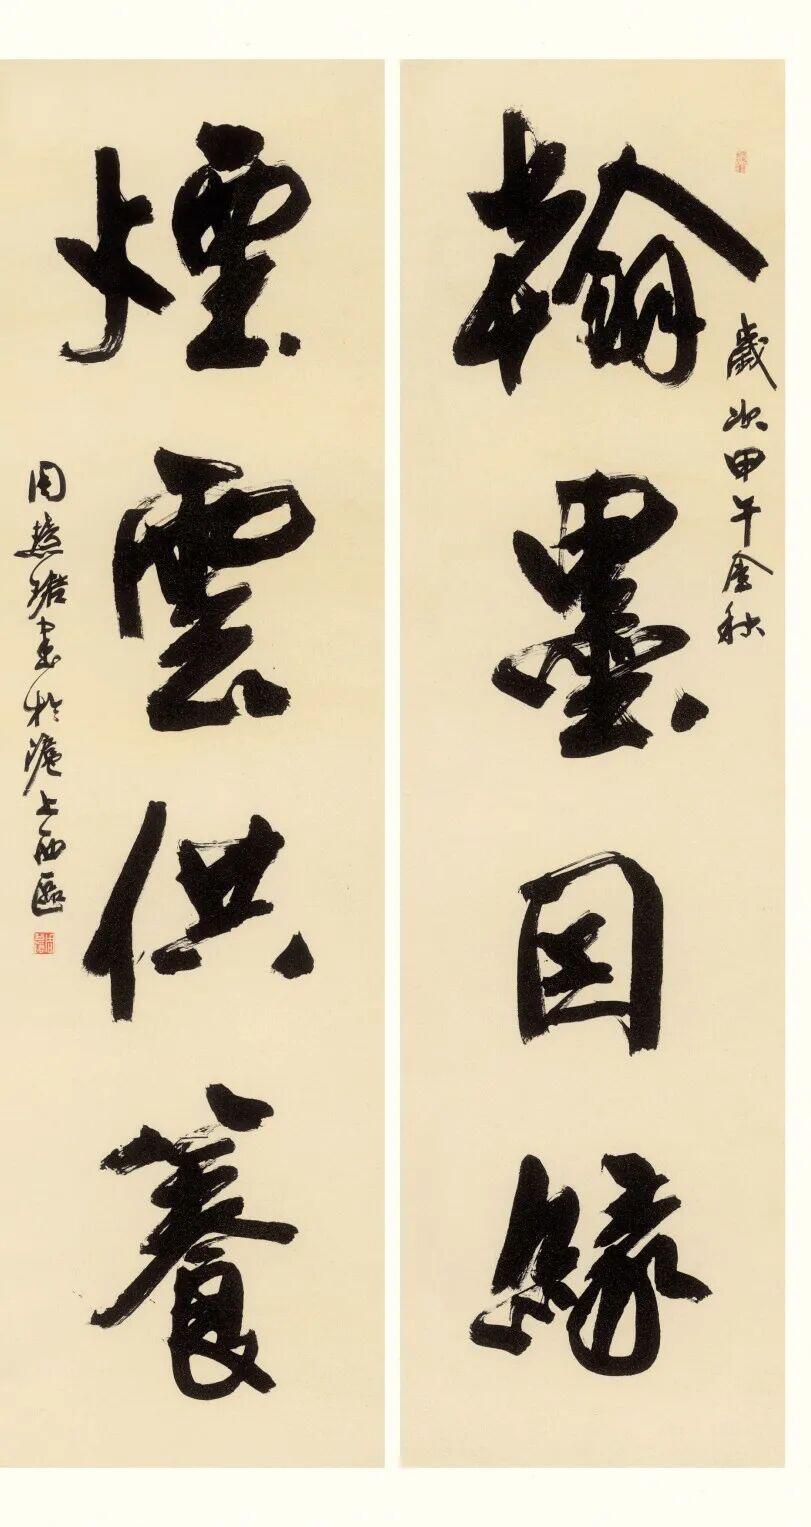 翰墨因缘
歲次甲午金秋
煙雲供養
周慧珺書於滬上西區